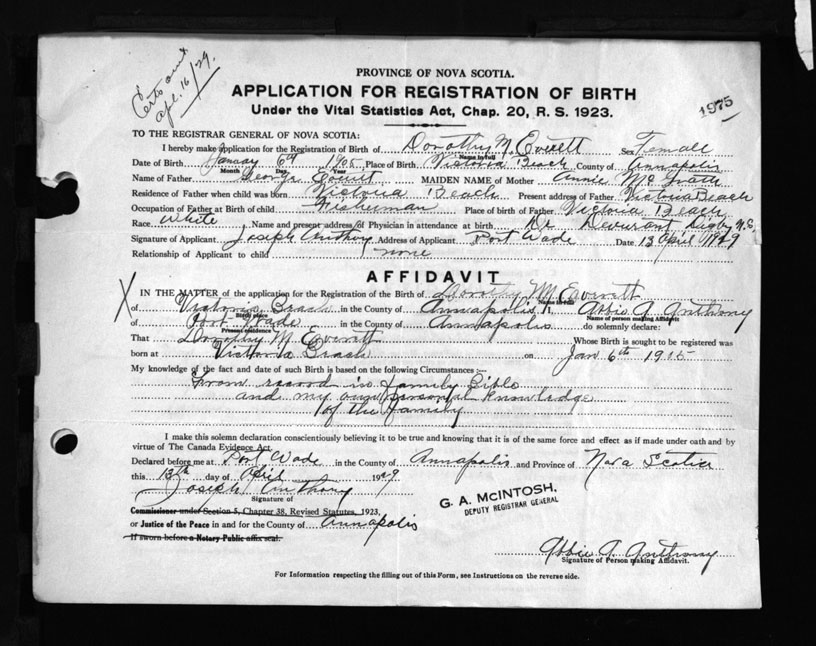 Certs out
Apl. 16/29.
PROVINCE OF NOVA SCOTIA.
APPLICATION FOR REGISTRATION OF BIRTH
Under the Vital Statistics Act, Chap. 20, R. S. 1923.
1975
TO THE REGISTRAR GENERAL OF NOVA SCOTIA:
I hereby make application for the Registration of Birth of Dorothy M. Everett Sex Female
Name in full
Date of Birth January 6th Place of Birth Victoria Beach County of Annapolis
Month Day Year
Name of Father George Everett MAIDEN NAME of Mother Annie Mc Grath
Residence of Father when child was born Victoria Beach Present address of Father Victoria Beach
Occupation of Father at Birth of child Fisherman Place of birth of Father Victoria Beach
Race White Name and present address of Physician in attendance at birth Dr Digby N.S.
Signature of Applicant Joseph Anthony Address of Applicant Port Wade Date 13 April 1929
Relationship of Applicant to child none
AFFIDAVIT
IN THE MATTER of the application for the Registration of the Birth of Dorothy M Everett
Name in full
of Victoria Beach in the County of Annapolis I, Abbie A. Anthony
Birth place Name of person making Affidavit
of Port Wade in the County of Annapolis do solemnly declare:
Present residence
That Dorothy M Everett Whose Birth is sought to be registered was
born at Victoria Beach on Jan 6th
My knowledge of the fact and date of such Birth is based on the following Circumstances :—
From record in family Bible
and my own personal knowledge
of the family
I make this solemn declaration conscientiously believing it to be true and knowing that it is of the same force and effect as if made under oath and by
virtue of The Canada Evidence Act.
Declared before me at Port Wade in the County of Annapolis and Province of Nova Scotia
this 13th day of April 1929
Joseph Anthony
Signature of
G. A. McINTOSH,
DEPUTY REGISTRAR GENERAL
Commissioner under Section 5, Chapter 38, Revised Statutes, 1923,
or Justice of the Peace in and for the County of Annapolis
If sworn before a Notary Public affix seal.
Abbie A. Anthony
Signature of Person making Affidavit.
For Information respecting the filling out of this Form, see Instructions on the reverse side.